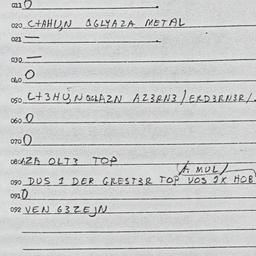 011 0
020 C+AHU,N AGLYAZA METAL
021 —
030 —
040 0
050 C+3HU,N OGLAZN AZ3RN3/EKD3RN3R/.
060 0
070 0
080 AZA OLT3 TOP
(A MUL/
090 DUS 1 DER GREST3R TOP VOS 2X HOB
091 0
092 VEN G3ZEJN